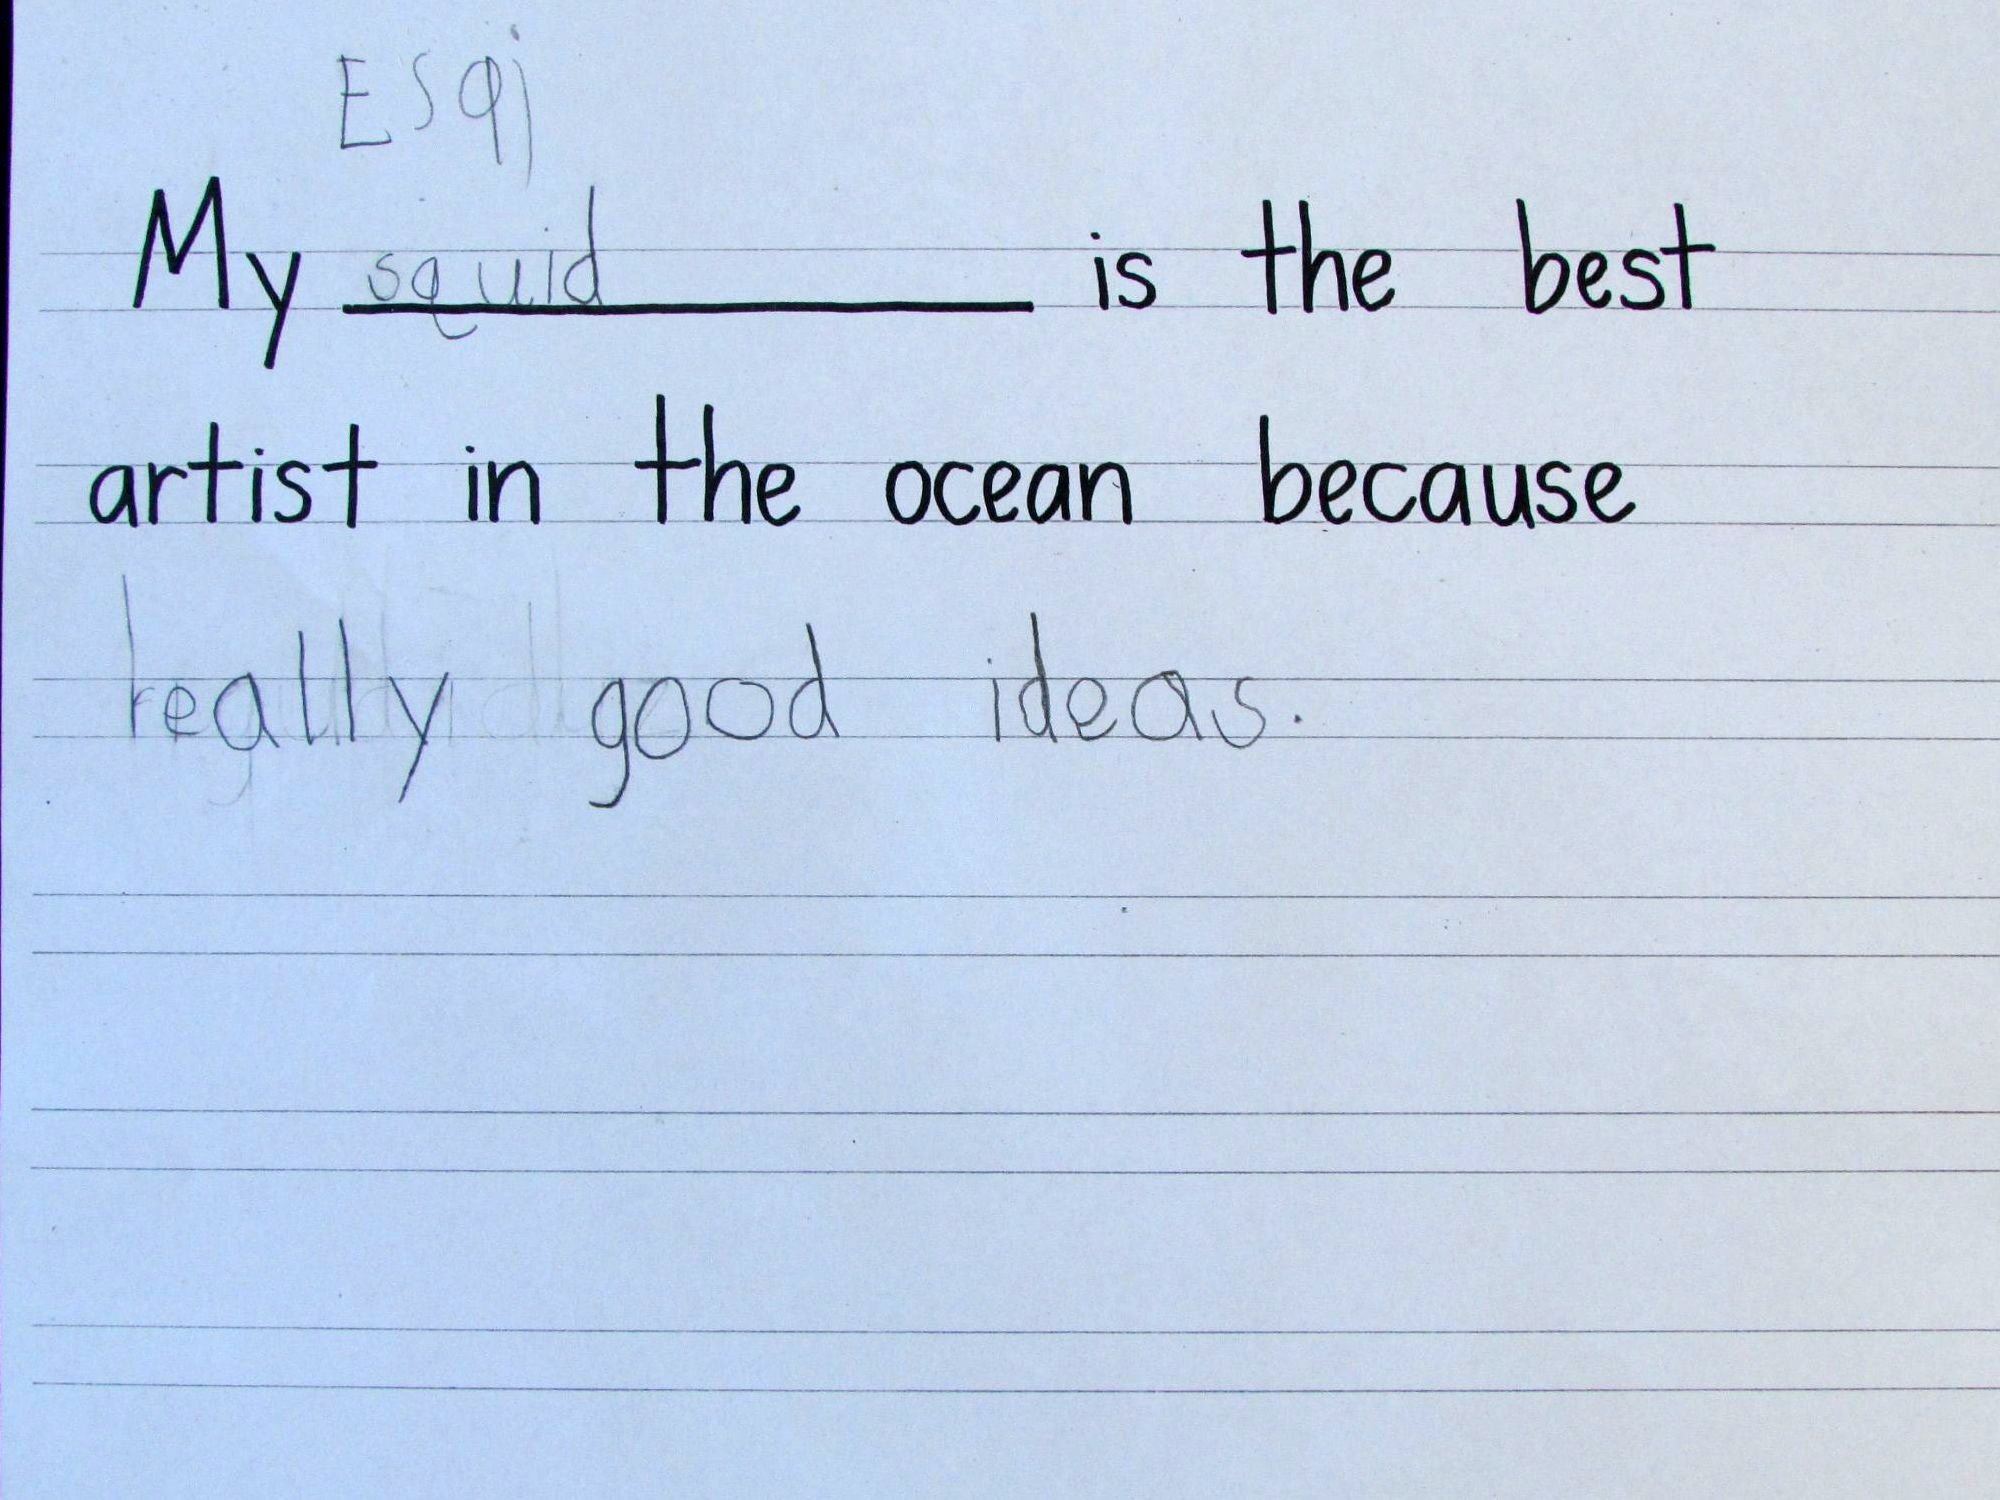 Esqj
My squid is the best
artist in the ocean because
really good ideas.